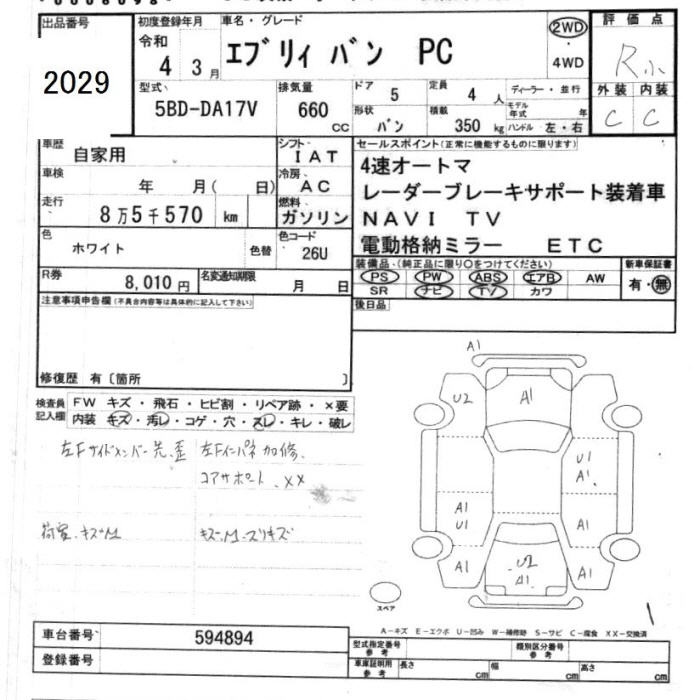 出品番号 初度登録年月 車名・グレード 2WD ・ 4WD 評価点
2029
令和
4 3月
エブリィ バン PC
R
型式 5BD-DA17V
排気量 660 CC
ドア 5 定員 4人 ディーラー・並行
形状 バン 積載 350kg モデル年式 年 ハンドル 左・右
外装 内装
C C
車歴 自家用
シフト IAT
セールスポイント(正常に機能するものに限ります)
車検 年 月( 日)
冷房 AC
4速オートマ
レーダーブレーキサポート装着車
走行 8万5千570 km
燃料 ガソリン
NAVI TV
電動格納ミラー ETC
色 ホワイト 色替
色コード 26U
装備品(純正品に限り○をつけてください)
新車保証書
R券 8,010円
名変通知期限 月 日
PS PW ABS エアB AW
有・無
SR ナビ TV カワ
注意事項申告欄(不具合内容等は具体的に記入して下さい)
後日品
修復歴 有〔箇所 〕
検査員記入欄
FW キズ・飛石・ヒビ割・リペア跡・×要
内装 キズ・汚レ・コゲ・穴・スレ・キレ・破レ
左Fサイドメンバー先、歪 左Fインパネ加修、
コアサポート、××
荷室、キズM キズM、スリキズ
A1
U2 A1
U1
A1
A1
U1 A1
A1 U2
A1 A1
スペア
A-キズ E-エクボ U-凹み W-補修跡 S-サビ C-腐食 XX-交換済
車台番号 594894
型式指定番号 参考 類別区分番号 参考
登録番号
車庫証明用 参考 長さ cm 幅 cm 高さ cm